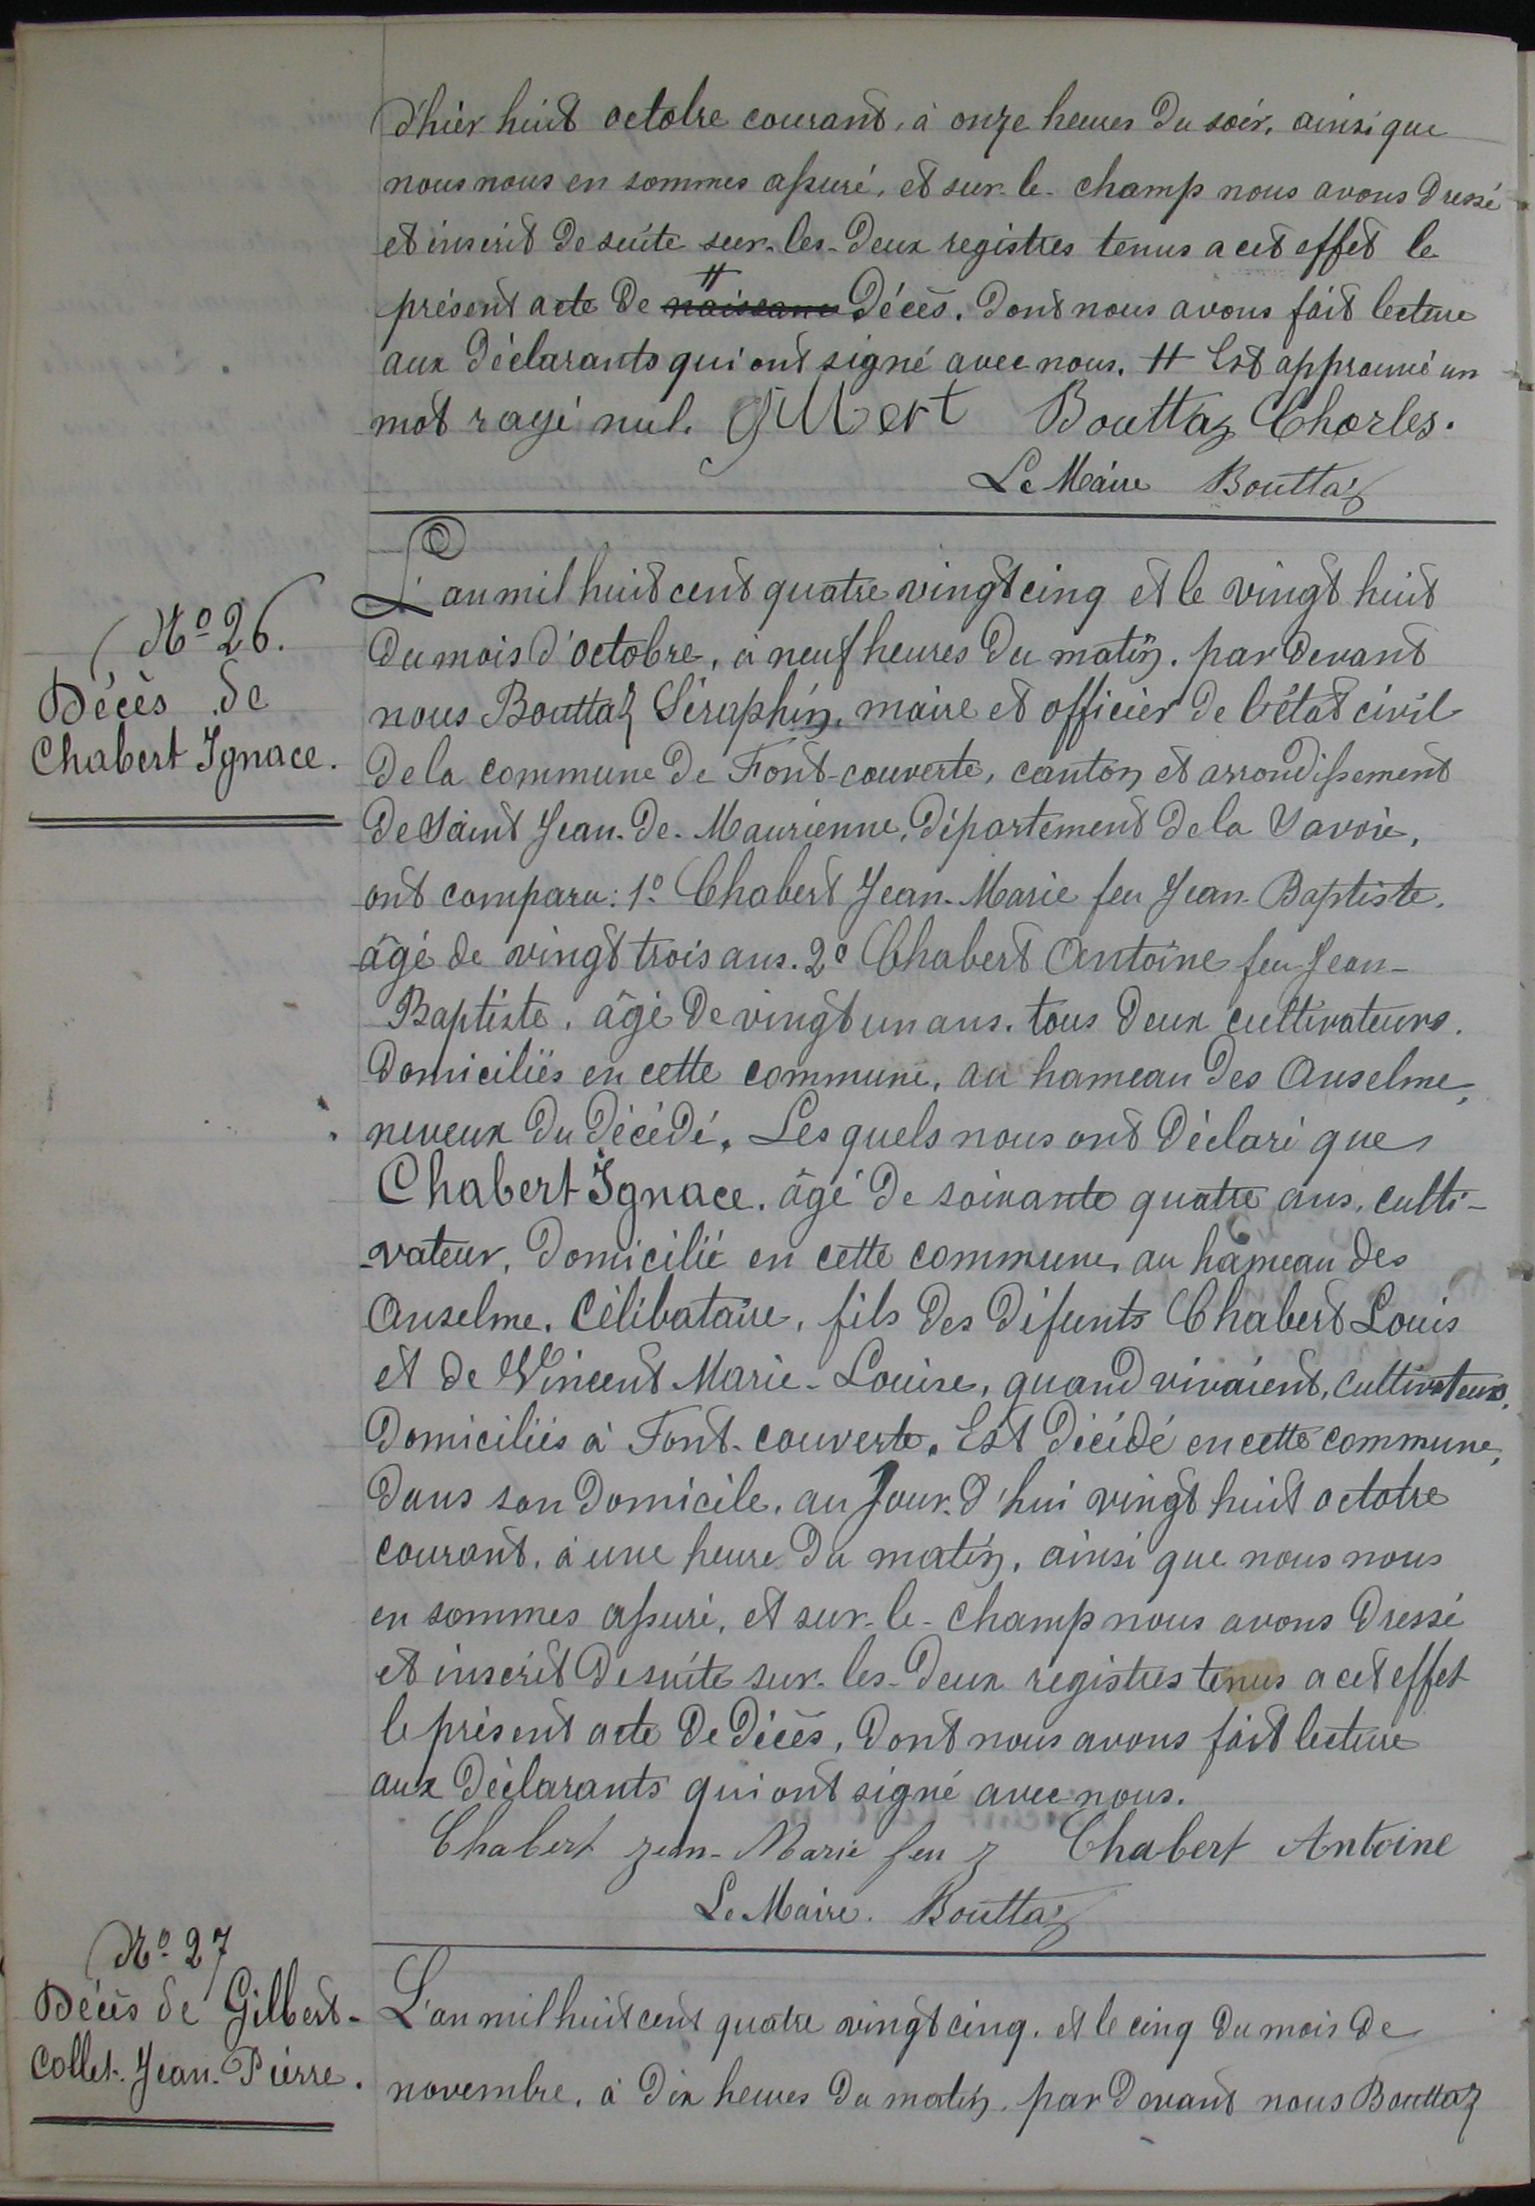 d'hier huit octobre courant, à onze heures du soir, ainsi que
nous nous en sommes assuré, et sur-le-champ nous avons dressé
et inscrit de suite sur-les-deux registres tenus a cet effet le
présent acte de # naissance décès. dont nous avons fait lecture
aux déclarants qui ont signé avec nous. # Est approuvé un
mot rayé nul. Bouttaz Charles.
Le Maire Bouttaz
N° 26.
Décès de
Chabert Ignace.
L'an mil huit cent quatre vingt cinq et le vingt huit
du mois d'octobre, à neuf heures du matin. par devant
nous Bouttaz Séraphin, maire et officier de l'état civil
de la commune de Font-couverte, canton et arrondissement
de Saint Jean-de-Maurienne, département de la Savoie,
ont comparu: 1° Chabert Jean-Marie feu Jean-Baptiste.
âgé de vingt trois ans. 2° Chabert Antoine feu Jean-
Baptiste, âgé de vingt un ans. tous deux cultivateurs.
domiciliés en cette commune, au hameau des Anselme,
neveux du décédé. Les quels nous ont déclaré que
Chabert Ignace. âgé de soixante quatre ans, culti-
-vateur, domicilié en cette commune, au hameau des
Anselme. Célibataire, fils des défunts Chabert Louis
et de Vincent Marie-Louise, quand vivaient, cultivateurs,
domiciliés à Font-couverte. Est décédé en cette commune,
dans son domicile, au Jour-d'hui vingt huit octobre
courant, à une heure du matin, ainsi que nous nous
en sommes assuré, et sur-le-champ nous avons dressé
et inscrit de suite sur-les-deux registres tenus a cet effet
le présent acte de décès, dont nous avons fait lecture
aux déclarants qui ont signé avec nous.
Chabert jean-Marie feu j Chabert Antoine
Le Maire. Bouttaz
N° 27
Décès de Gilbert-
Collet-Jean-Pierre.
L'an mil huit cent quatre vingt cinq. et le cinq du mois de
novembre, à dix heures du matin, par devant nous Bouttaz